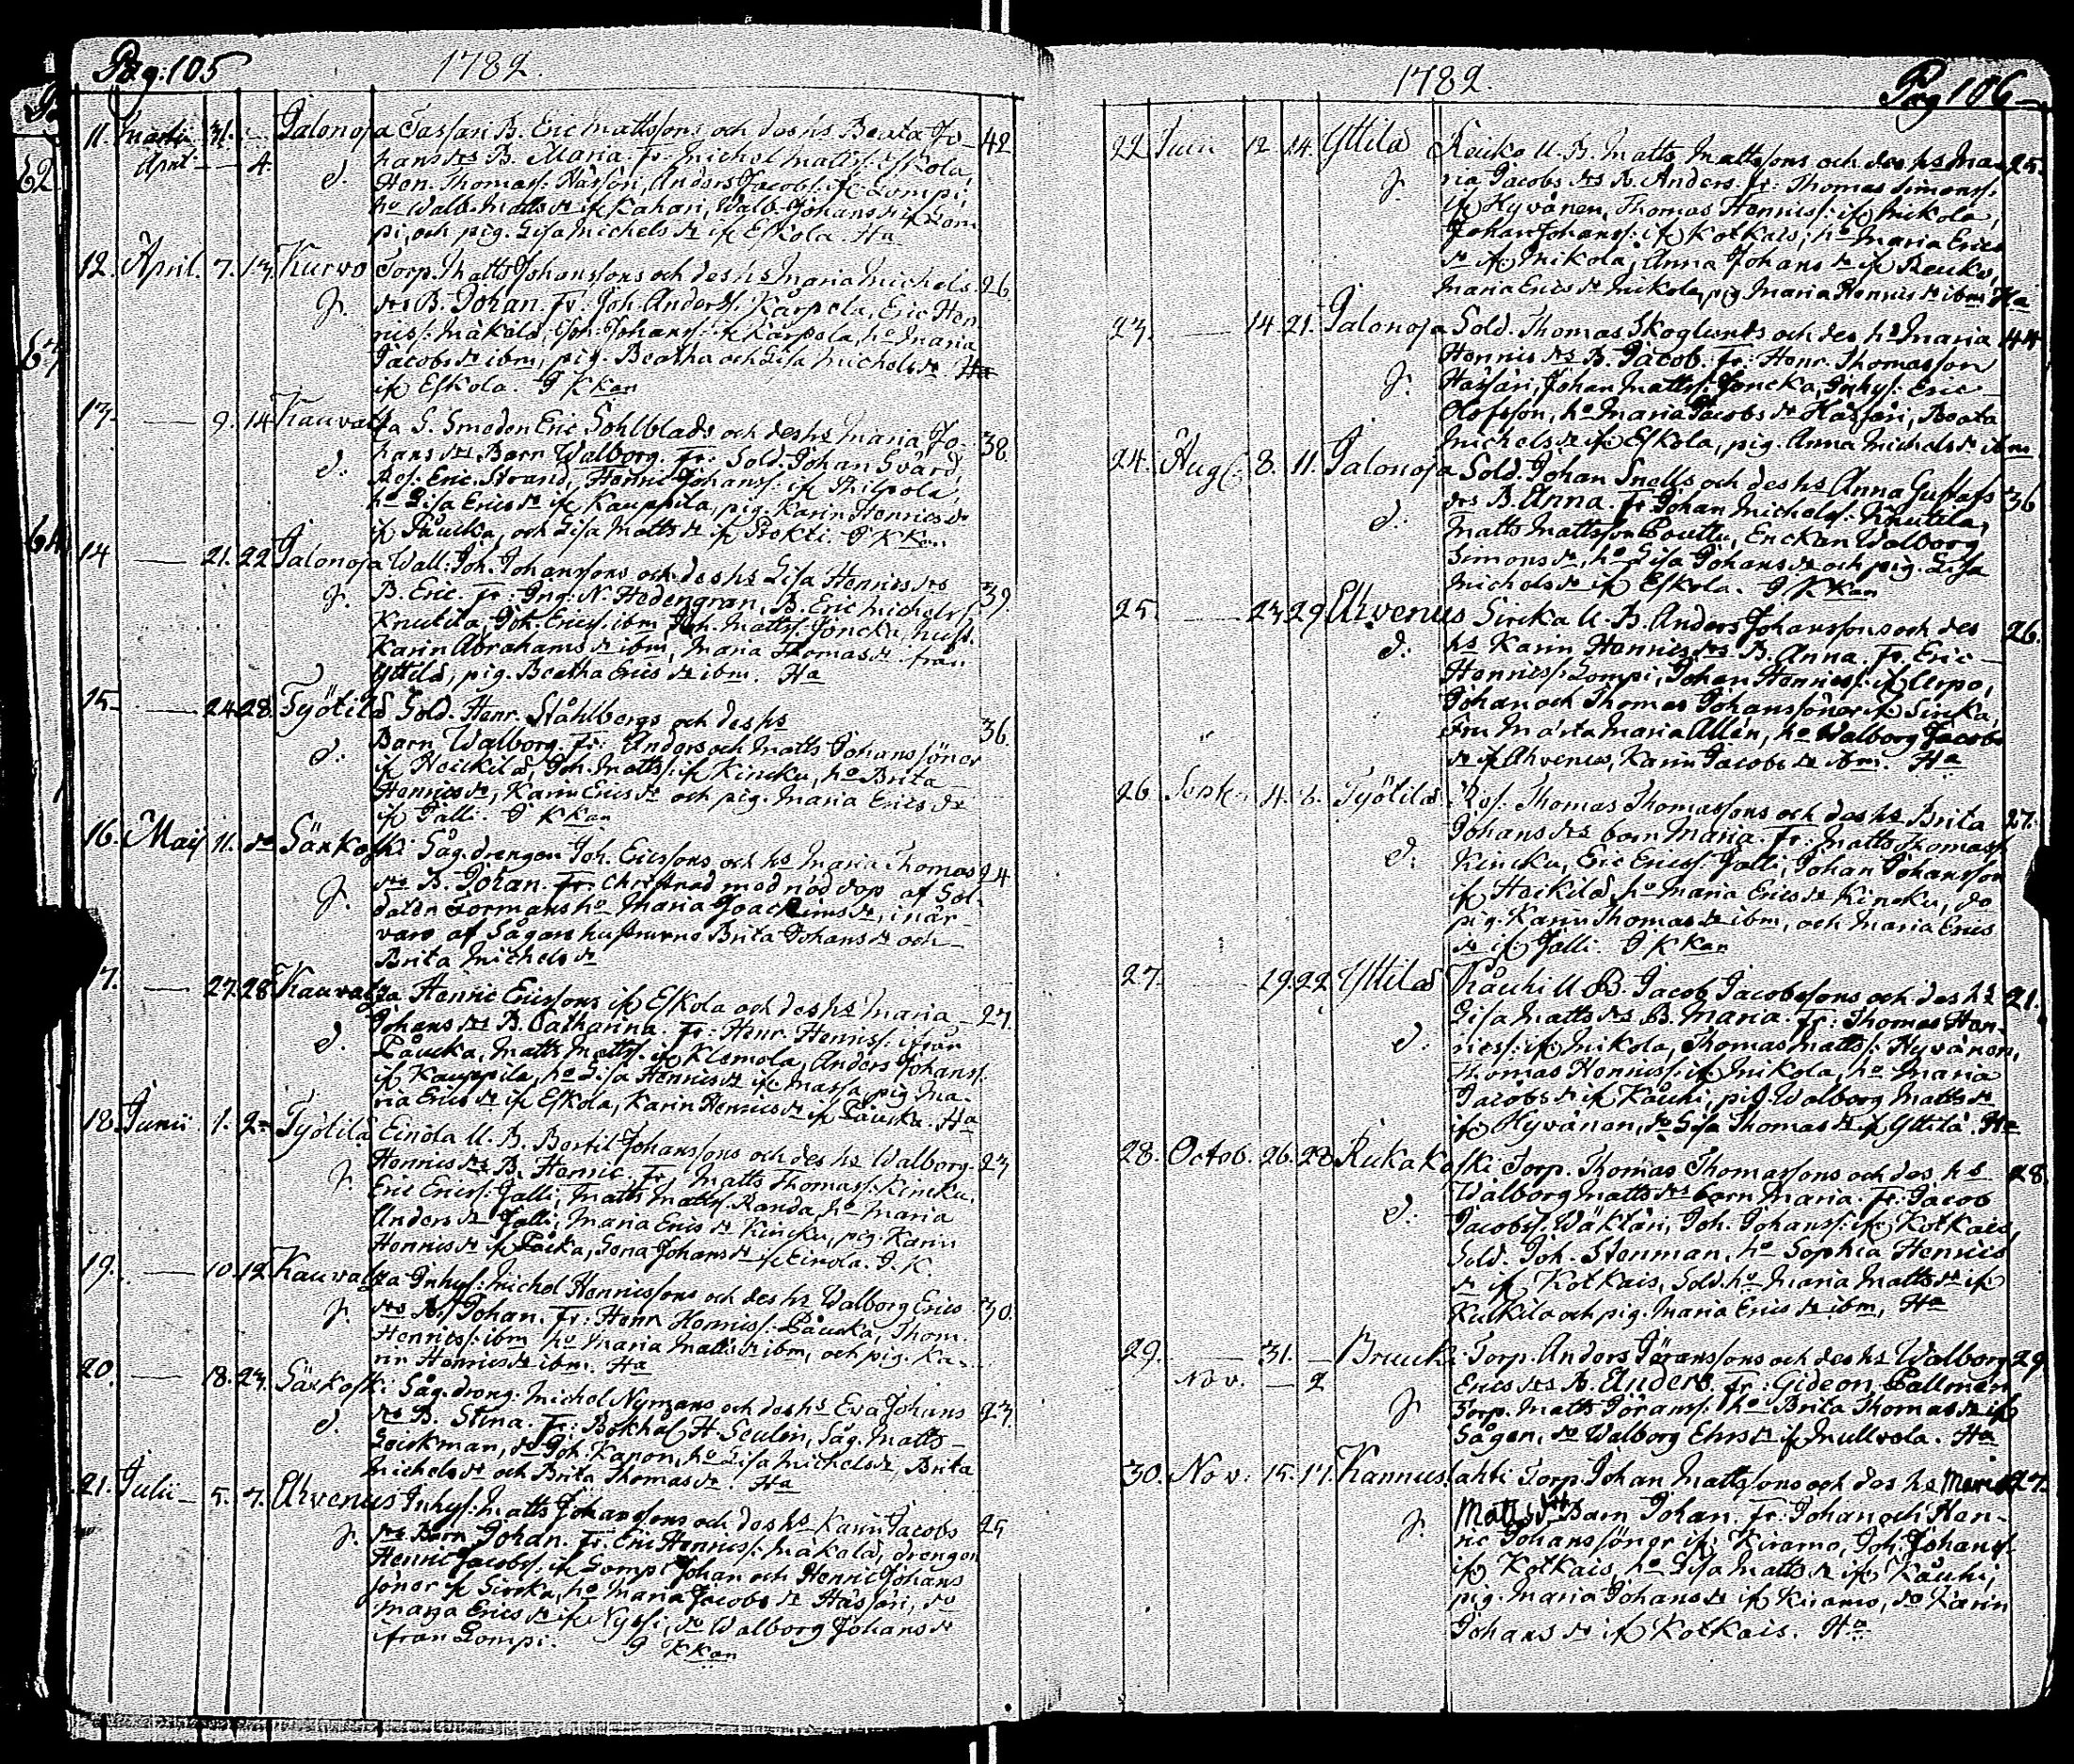 Pag: 105
1782.
11. Martii 31. — Jalonoja Tassari B. Eric Mattssons och des hs Beata Jo- 42
April — 4. d. hans drs B. Maria. Fr: Michel Matts: Eskola,
Hen. Thomass: Hässöri, Anders Jacobs: if Lompi,
ho Walb. Matts dr if Kahari, Walb. Johans dr if Lom
pi, och pig. Lisa Michels dr if Eskola. Ha
12. April. 7. 13. Kurvo Torp. Matts Johanssons och des hs Maria Michels 26.
g. drs B. Johan. Fr: Joh. Anderss. Kärpela, Eric Hen
rics: Mäkälä, Joh: Johanss: if Kärpela, ho Maria
Jacobs dr ibm, pig. Beatha och Lisa Michels dr
if Eskola. J K kan
13. — 9. 14 Kauvatza S. Smeden Eric Sohlblads och des hs Maria Jo- 38.
d. hans drs Barn Walborg. Fr: Sold. Johan Svärd,
Ref: Eric Strand, Henric Johanss: if Philpola
ho Lisa Erics dr if Kauppila, pig. Karin Henrics dr
if Påucka, och Lisa Matts dr if Prokti. J K kan
14 — 21. 22 Jalonoja Wall: Joh. Johanssons och des hs Lisa Henrics drs 39.
g. B. Eric. Fr: Ing: N. Hedengran, B. Eric Michelss
Knutila, Joh. Erics: ibm, Joh. Matts: Joncka, hust.
Karin Abrahams dr ibm, Maria Thomas dr från
Yttilä, pig. Beatha Erics dr ibm. Ha
15. — 24 28. Työtilä Sold. Henr. Ståhlbergs och des hs 36.
d. Barn Walborg. Fr: Anders och Matts Johanssöner
if Heickilä, Joh. Matts: if Kincku, ho Brita
Henrics dr, Karin Erics dr och pig. Maria Erics dr
if Jalli. J K kan
16. Maij 11. do Säxkoski Såg. drengen Joh. Ericssons och hs Maria Thomas 24
g. drs B. Johan. Fr: Christnad med nöd dop af Sol-
daten Formans ho Maria Joachims dr, i när-
varo af Sågens hustrurne Brita Johans dr och
Brita Michels dr
17. — 27. 28 Kauvatza Henric Ericssons if Eskola och des hs Maria 27.
d. Johans drs B. Catharina. Fr: Henr. Henrics: ifrån
Påucka, Matts Matts: if Klemola, Anders Johanss:
if Kauppila, ho Lisa Henrics dr if Massa, pig Ma-
ria Erics dr if Eskola, Karin Henrics dr if Påucka. Ha
18. Junii 1. 2. Työtilä Einola U. B. Bertil Johanssons och des hs Walborg 23
g. Henrics drs B. Henric. Fr: Matts Thomass: Kincku.
Eric Erics: Jalli, Matts Matts: Randa, ho Maria
Anders dr Jalli, Maria Erics dr Kincku, pig. Karin
Henrics dr if Påcka, Lena Johans dr if Einola. J. K.
19. — 10. 12 Kauvatza Inhys: Michel Henricssons och des hs Walborg Erics 30.
g. drs B. Johan. Fr: Henr. Henrics: Påucka, Thom.
Henrics: ibm ho Maria Matts dr ibm, och pig. Ka-
rin Henrics dr ibm. Ha
20. — 18. 23. Säxkoski Såg. dreng. Michel Nymans och des hs Eva Johans 23
d. drs B. Stina. Fr: Bokhal H. Seulin, Såg. Matts
Loickman, do Joh. Kanon, ho Lisa Michels dr, Brita
Michels dr och Brita Thomas dr. Ha
21. Julii 5. 7. Ahvenus Inhys: Matts Johanssons och des hs Karin Jacobs 25
g. drs Barn Johan. Fr: Eric Henrics: Makalä, drengen
Henric Jacobs: if Lompi Johan och Henric Johans
söner if Sircka, ho Maria Jacobs dr Hässari, do
Marja Erics dr if Nyssi, do Walborg Johans dr
ifrån Lompi. J K kan
1782.
Pag 106
22 Julii 12. 14. Yttilä Reuko U. B. Matts Mattssons och des hs Ma- 25.
g. ria Jacobs drs B. Anders. Fr: Thomas Simons:
if Hyvänen, Thomas Henrics: if Mikola,
Johan Johanss: if Kotkais; ho Maria Erics
dr if Mikola, Anna Johans dr if Reuko,
Maria Erics dr Mikola, pig Maria Henrics dr ibm Ha
23. — 14. 21. Jalonoja Sold. Thomas Skoglunds och des hs Maria 44
g. Henrics drs B. Jacob. Fr: Henr. Thomasson
Hässäri, Johan Matts: Joncka, Inhys: Eric
Olofsson, ho Maria Jacobs dr Hässäri, Beata
Michels dr if Eskola, pig. Anna Michels dr ibm
24. Aug: 8. 11. Jalonoja Sold. Johan Snells och des hs Anna Gustafs 36
d. drs B. Anna. Fr Johan Michels: Knutila,
Matts Mattsson Pouttu, Enckan Walborg
Simons dr, ho Lisa Johans dr och pig. Lisa
Michels dr if Eskola. J K kan
25. — 23. 29 Ahvenus Sircka U. B. Anders Johanssons och des 26.
d. hs Karin Henrics drs B. Anna. Fr. Eric
Henrics: Lompi, Johan Henrics: if Urpo,
Johan och Thomas Johanssöner if Sircka,
Fru Märta Maria Allén, ho Walborg Jacobs
dr if Ahvenus, Karin Jacobs dr ibm. Ha
26 Sept. 4. 8. Työtilä Ref: Thomas Thomassons och des hs Brita 27.
d. Johans drs barn Maria. Fr: Matts Thomass
Kincku, Eric Erics: Jalli, Johan Johansson
if Heickilä ho Maria Erics dr Kincku, do
pig. Karin Thomas dr ibm, och Maria Erics
dr if Jalli. J K kan
27. — 19. 22 Yttilä Kåuhi U B. Jacob Jacobssons och des hs 21.
d. Lisa Matts drs B. Maria. Fr: Thomas Hen-
rics: if Mikola, Thomas Matts: Hyvänen,
Thomas Henrics: if Mikola, ho Maria
Jacobs dr if Kåuhi, pig. Walborg Matts dr
if Hyvänen, do Lisa Thomas dr if Yttilä. Ha
28. Octob. 26. 28 Kukakoski Torp. Thomas Thomassons och des hs 28.
d. Walborg Matts drs barn Maria. Fr: Jacob
Jacobs: Wäktäri, Joh. Johanss: if Kotkais,
Sold. Joh. Stenman, ho Sophia Henrics
dr if Kotkais, Sold. ho Maria Matts dr if
Kukila och pig. Maria Erics dr ibm, Ha
29. — 31. — Bruuki Torp. Anders Göranssons och des hs Walborg 29
Nov. — 2 Erics drs B. Anders. Fr: Gideon Pallmén
g. Torp. Matts Görans: ho Brita Thomas dr if
Sågen, do Walborg Ehrs dr if Mullvola. Ha
30. Nov. 15. 17. Kannuslahti Torp. Johan Mattssons och des hs Maria 27.
g. Matts dr Barn Johan. Fr: Johan och Hen-
ric Johanssöner if: Kiramo, Joh: Johanss:
if Kotkais, ho Lisa Matts dr if Kåuhi,
pig. Maria Johans dr if Kiramo, do Karin
Johans dr if Kotkais. Ha